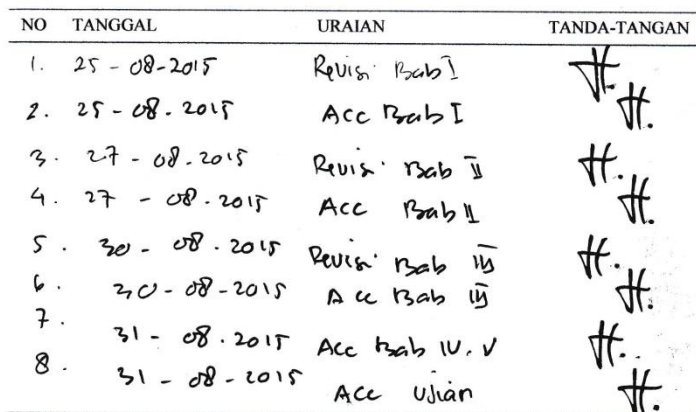 NO TANGGAL URAIAN TANDA-TANGAN
1. 25 - 08-2015 Revisi Bab I
2. 25 - 08 - 2015 Acc Bab I
3. 27 - 08 - 2015 Revisi Bab II
4. 27 - 08 - 2015 Acc Bab II
5. 30 - 08 - 2015 Revisi Bab III
6. 30 - 08 - 2015 Acc Bab III
7. 31 - 08 - 2015 Acc Bab IV. V
8. 31 - 08 - 2015 Acc Ujian